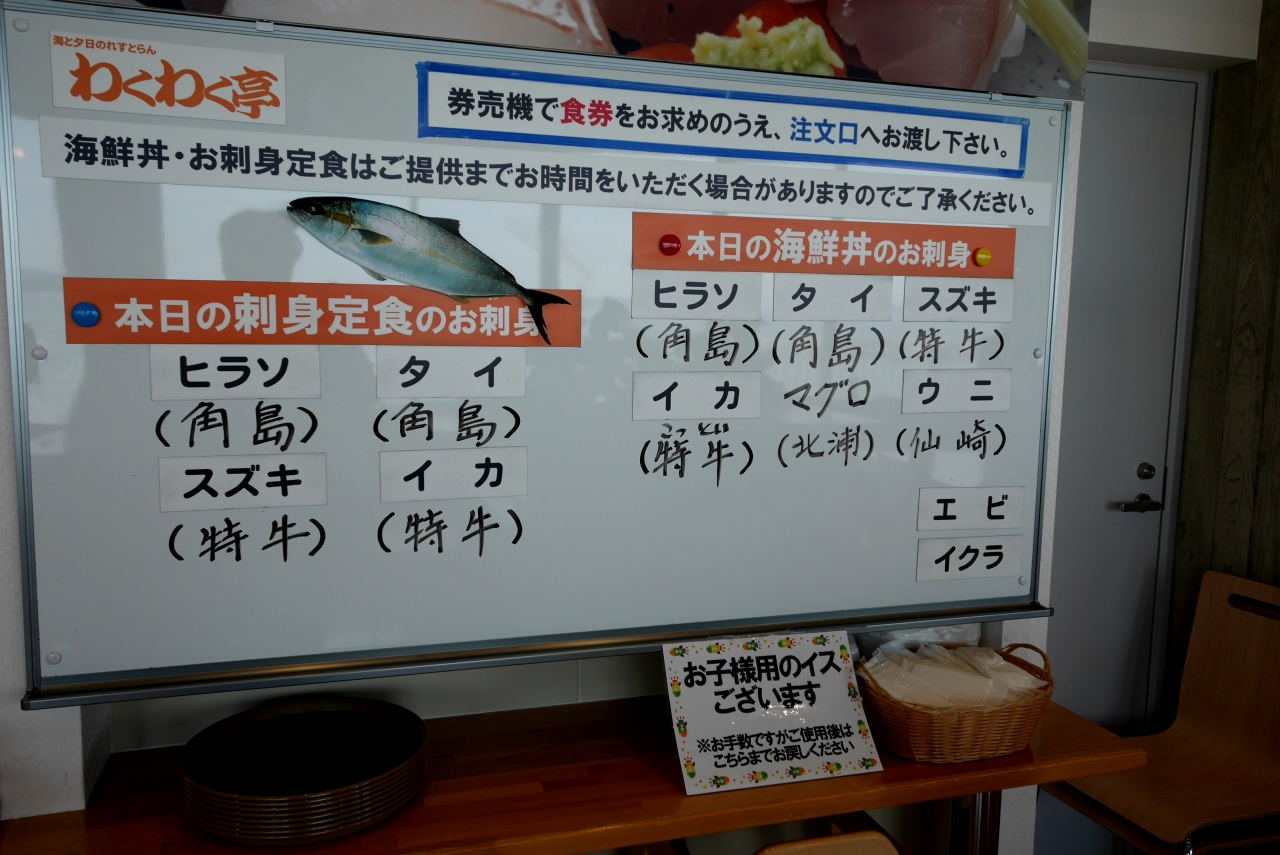 海と夕日のれすとらん
わくわく亭
券売機で食券をお求めのうえ、注文口へお渡し下さい。
海鮮丼・お刺身定食はご提供までお時間をいただく場合がありますのでご了承ください。
本日の刺身定食のお刺身
ヒラソ タイ
(角島) (角島)
スズキ イカ
(特牛) (特牛)
本日の海鮮丼のお刺身
ヒラソ タイ スズキ
(角島) (角島) (特牛)
イカ マグロ ウニ
こっとい
(特牛) (北浦) (仙崎)
エビ
イクラ
お子様用のイス
ございます
※お手数ですがご使用後は
こちらまでお戻しください